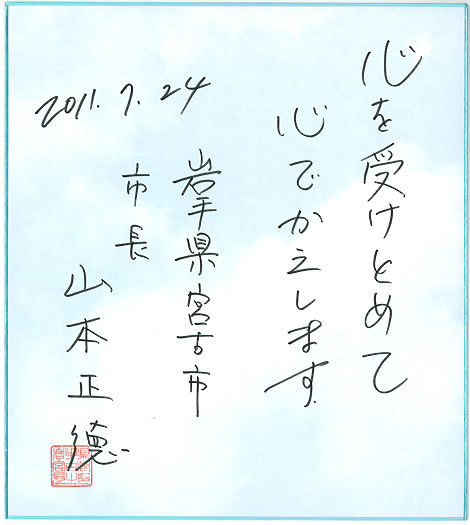 心を受けとめて
心でかえします
2011.7.24
岩手県宮古市
市長
山本正徳